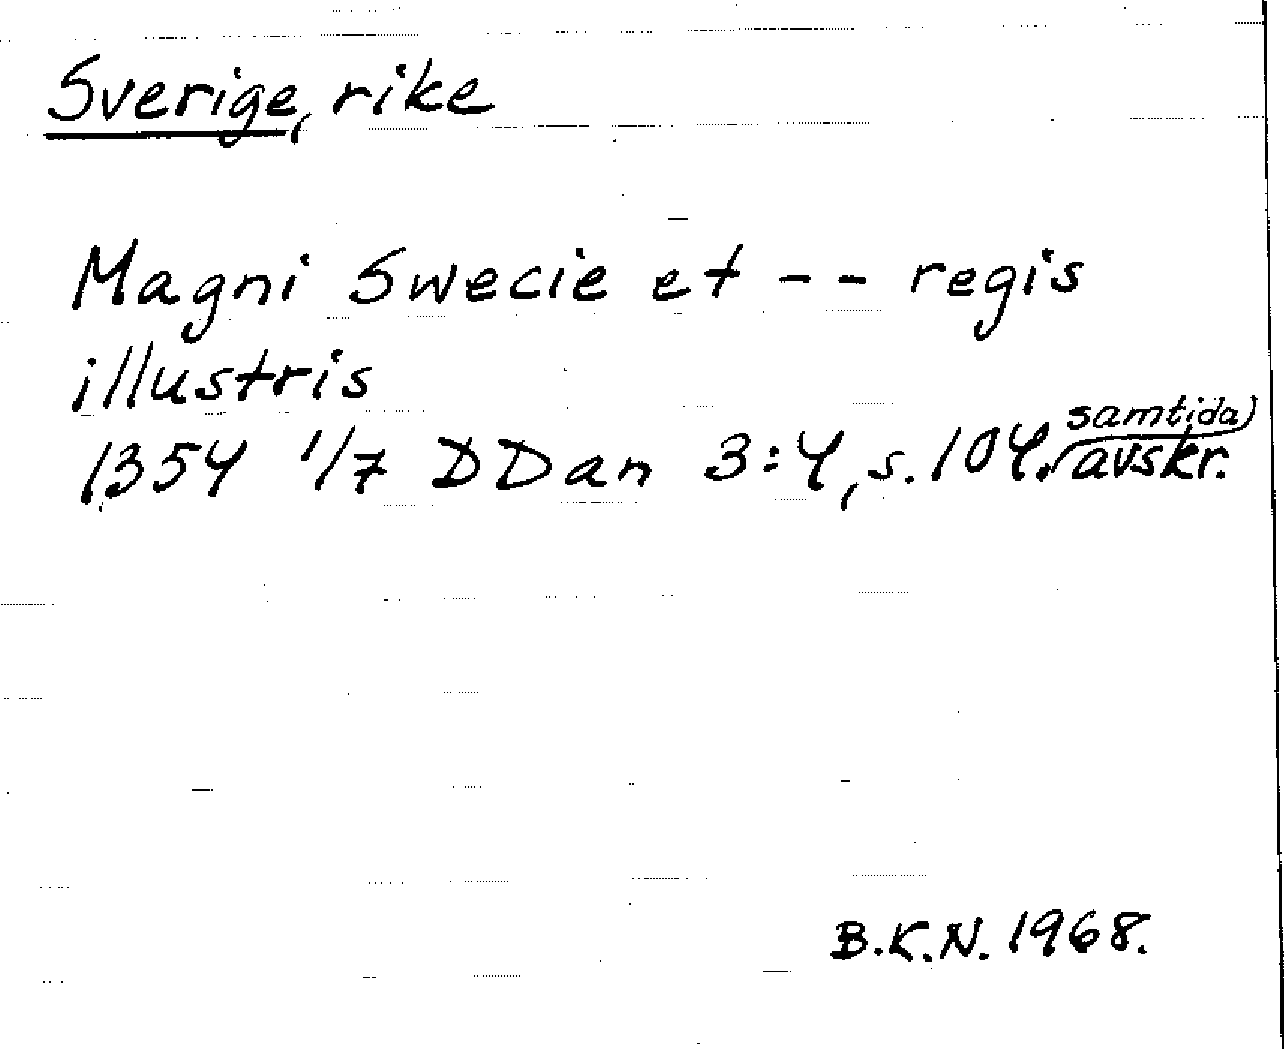 Sverige, rike
Magni Swecie et -- regis
illustris
1354 1/7 DDan 3:4, s. 104. samtida avskr.
B.K.N. 1968.